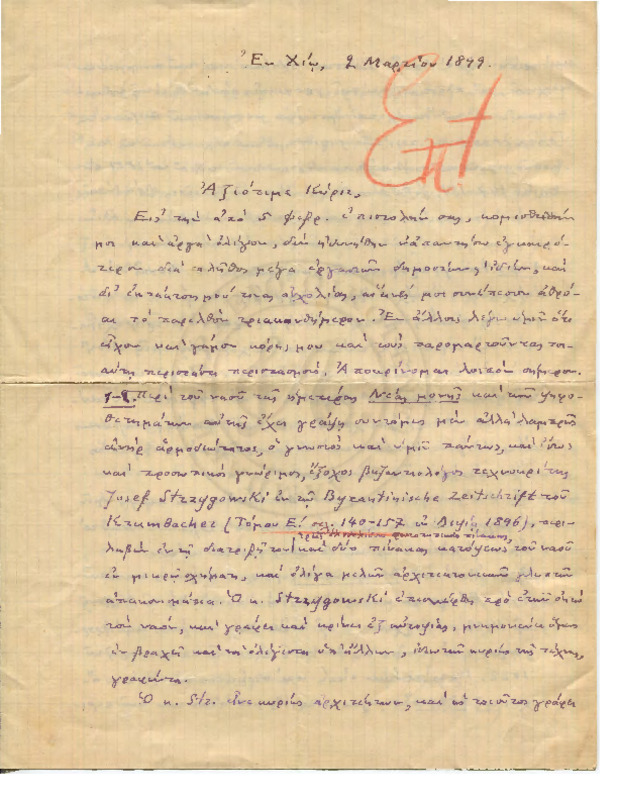 Ἐν Χίῳ, 2 Μαρτίου 1899.
Ἐπ!
Ἀξιότιμε Κύριε,
Εἰς τὴν ἀπὸ 5 Φεβρ. ἐπιστολήν σας, κομισθεῖσάν
μοι καὶ ἀργὰ ὀλίγον, δὲν ἠδυνήθην νὰ ἀπαντήσω ἐγκαιρό-
τερον διὰ πλῆθος μέγα ἐργασιῶν δημοσίων, ἰδίων, καὶ
δι' ἔκτακτους μου τινας ἀσχολίας, αἵτινές μοι συνέπεσον ἀθρό-
αι τὸ παρελθὸν τριακονθήμερον. Ἐν ἄλλοις λέγω ὑμῖν ὅτι
εἶχον καὶ γάμον κόρης μου καὶ τοὺς παρομαρτοῦντας τοι-
αύτῃ περιστάσει περισπασμούς. Ἀποκρίνομαι λοιπὸν σήμερον.
1-2. Περὶ τοῦ ναοῦ τῆς ἡμετέρας Νέας μονῆς καὶ τῶν ψηφο-
θετημάτων αὐτῆς ἔχει γράψῃ συντόμως μὲν ἀλλὰ λαμπρῶς
ἀνὴρ ἁρμοδιώτατος, ὁ γνωστὸς καὶ ὑμῖν πάντως, καὶ ἴσως
καὶ προσωπικὸς γνώριμος, ἔξοχος βυζαντιολόγος τεχνοκρίτης
Josef Strzygowski ἐν τῇ Byzantinische Zeitschrift τοῦ
Krumbacher (Τόμου Ε', σελ. 140-157 ἐν Λειψίᾳ 1896), περι-
λαβὼν ἐν τῇ διατριβῇ του καὶ δύο πίνακας κατόψεως τοῦ ναοῦ
ἐν μικρῷ σχήματι, καὶ ὀλίγα μελῶν ἀρχιτεκτονικῶν γλυπτῶν
ἀπεικονίσματα. Ὁ κ. Strzygowski ἐπεσκέφθη πρὸ ἐτῶν ὀκτὼ
τὸν ναόν, καὶ γράφει καὶ κρίνει ἐξ αὐτοψίας, μνημονεύων ὅμως
ἐν βραχεῖ καὶ τὰ ὀλίγιστα ὑπ' ἄλλων, ἰδιωτῶν κυρίως τῆς τέχνης,
γραφέντα.
Ὁ κ. Str. εἶνε κυρίως ἀρχιτέκτων, καὶ ὡς τοιοῦτος γράφει